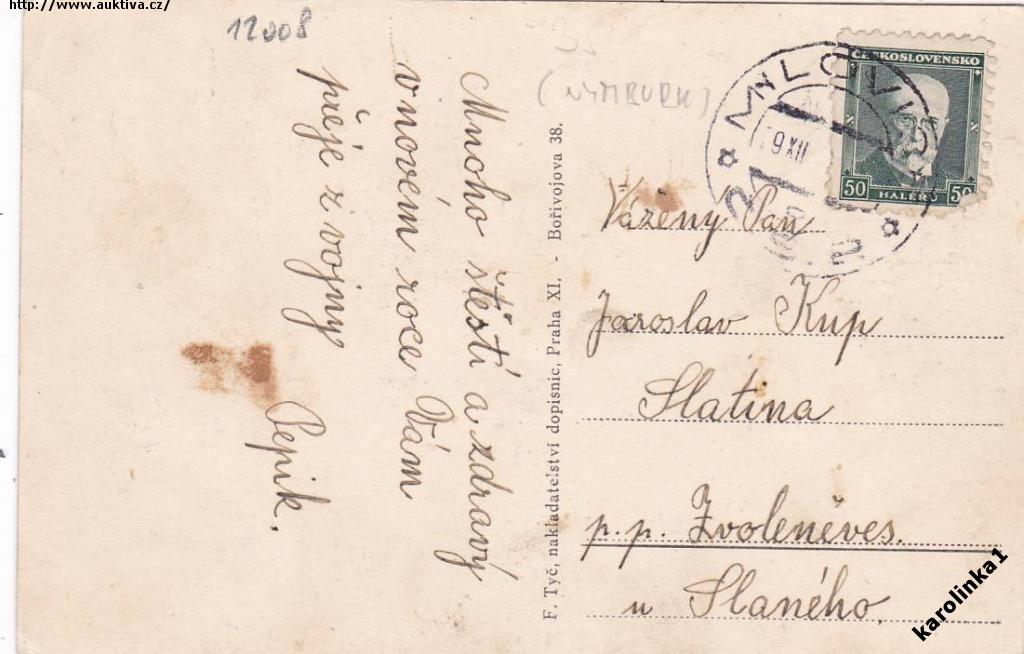 http://www.auktiva.cz/
12008
(NYMBURK)
Mnoho štěstí a zdravý
v novém roce Vám
přeje z vojny
Pepik.
F. Tyč, nakladatelství dopisnic, Praha XI. - Bořivojova 38.
MILOVICE
9 XII
2
ČESKOSLOVENSKO
50 HALÉRŮ 50
Vážený Pan
Jaroslav Kup
Slatina
p. p. Zvoleněves.
u Slaného.
karolinka1